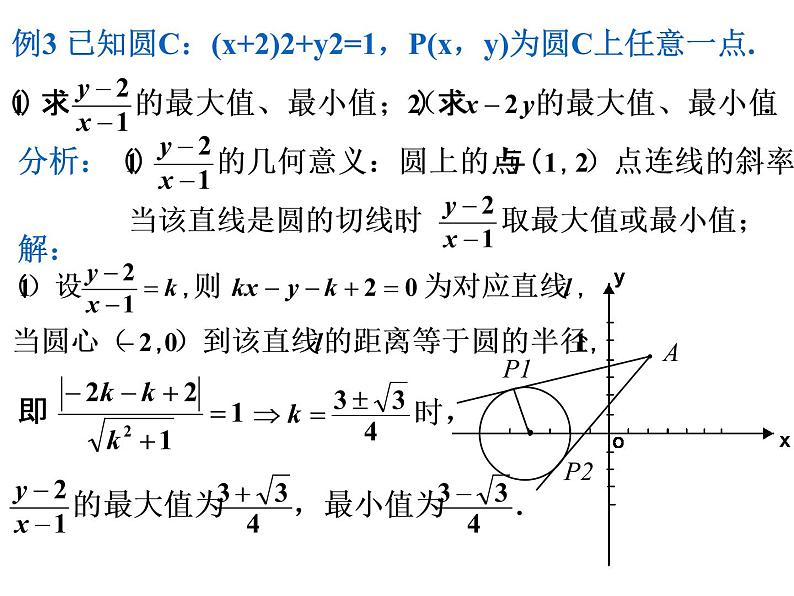 例3 已知圆C：(x+2)2+y2=1，P(x，y)为圆C上任意一点.
(1) 求 (y−2)/(x−1) 的最大值、最小值；(2) 求 x−2y 的最大值、最小值.
分析：(1) (y−2)/(x−1) 的几何意义：圆上的点与(1,2)点连线的斜率
当该直线是圆的切线时. (y−2)/(x−1) 取最大值或最小值；
解：
(1) 设 (y−2)/(x−1) = k ,则 kx−y−k+2=0 为对应直线 l ,
当圆心（−2,0）到该直线l的距离等于圆的半径1,
即 |−2k−k+2|/√(k²+1) = 1 ⇒ k = (3±√3)/4 时，
(y−2)/(x−1) 的最大值为 (3+√3)/4，最小值为 (3−√3)/4 .
y
A
P1
o
x
P2